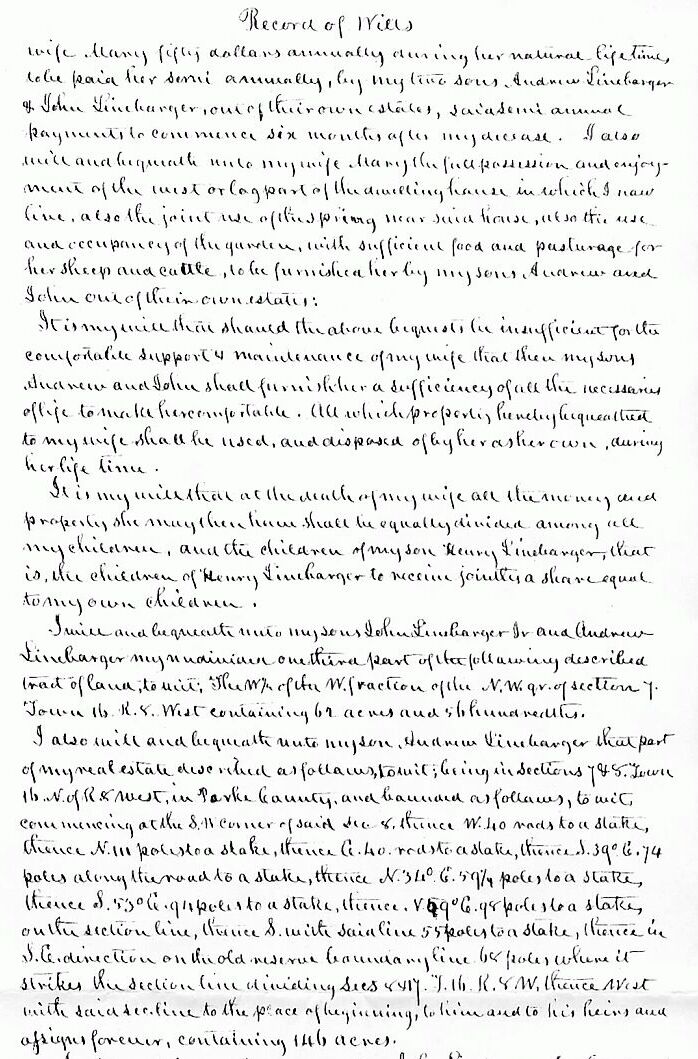 Record of Wills
wife Mary fifty dollars annually during her natural life time,
to be paid her semi annually, by my two sons Andrew Linebarger
& John Linebarger, out of their own estates, said semi annual
payments to commence six months after my decease. I also
will and bequeath unto my wife Mary the full possession and enjoy-
ment of the west or log part of the dwelling house in which I now
live, also the joint use of the spring near said house, also the use
and occupancy of the garden, with sufficient food and pasturage for
her sheep and cattle, to be furnished her by my sons Andrew and
John out of their own estates:
It is my will that should the above bequests be insufficient for the
comfortable support & maintenance of my wife that then my sons
Andrew and John shall furnish her a sufficiency of all the necessaries
of life to make her comfortable. All which property hereby bequeathed
to my wife shall be used, and disposed of by her as her own, during
her life time.
It is my will that at the death of my wife all the money and
property she may then have shall be equally divided among all
my children, and the children of my son Henry Linebarger, that
is, the children of Henry Linebarger to receive jointly a share equal
to my own children.
I will and bequeath unto my sons John Linebarger Jr and Andrew
Linebarger my undivided one third part of the following described
tract of land, to wit; The W½ of the W. fraction of the N.W. qr. of section 7.
Town 16. R. 8. West containing 62 acres and 56 hundredths.
I also will and bequeath unto my son Andrew Linebarger that part
of my real estate described as follows, to wit; being in sections 7 & 8. Town
16. N. of R 8 West, in Parke County, and bounded as follows, to wit,
commencing at the S.W corner of said Sec 8, thence W. 40 rods to a stake,
thence N. 111 poles to a stake, thence E. 40. rods to a stake, thence S. 39° E. 74
poles along the road to a stake, thence N. 34° E. 59¼ poles to a stake,
thence S. 53° E. 94 poles to a stake, thence N 69° E. 98 poles to a stake,
on the section line, thence S. with said line 55 poles to a stake, thence in
S.E. direction on the old reserve boundary line 68 poles where it
strikes the section line dividing Secs 8 & 17. T. 16. R. 8 W, thence West
with said sec. line to the place of beginning, to him and to his heirs and
assigns forever, containing 146 acres.